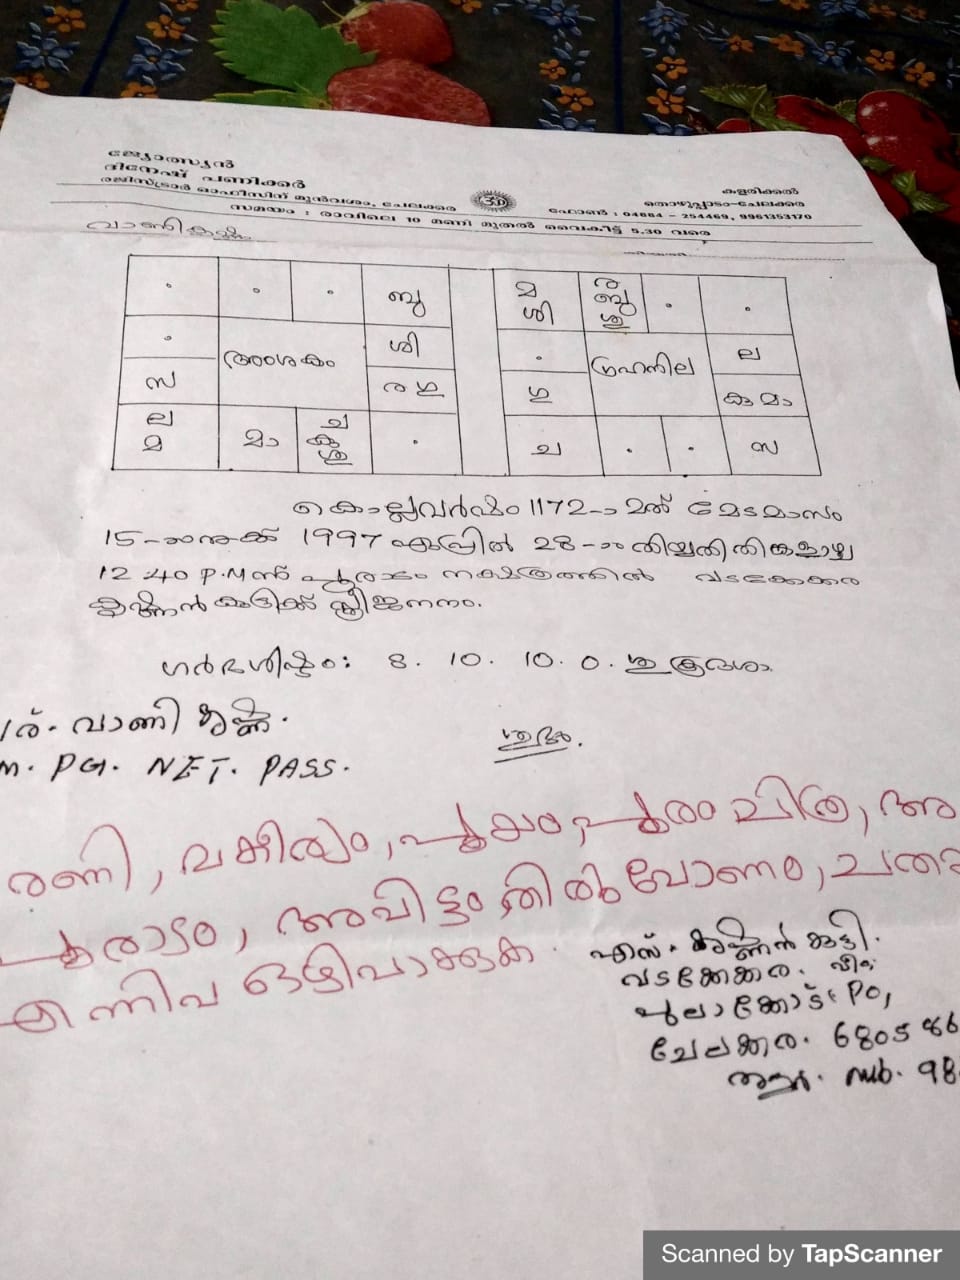 ജ്യോത്സ്യൻ
ദിനേഷ് പണിക്കർ
രജിസ്ട്രാർ ഓഫീസിന് മുൻവശം, ചേലക്കര
കളരിക്കൽ
തൊഴുപ്പാടം-ചേലക്കര
ഫോൺ : 04884 - 254469, 9961353170
സമയം : രാവിലെ 10 മണി മുതൽ വൈകീട്ട് 5.30 വരെ
വാണികൃഷ്ണ
ബു
ശി
അംശകം
സ
ര ഗു
ല
മ
മാ
ച
കു
ശു
മ
ശി
ര
ബു
ശു
ല
ഗ്രഹനില
ഗു
കു മാ
ച
സ
കൊല്ലവർഷം 1172-ാമത് മേടമാസം
15-ാംനുക്ക് 1997 ഏപ്രിൽ 28-ാംതിയ്യതി തിങ്കളാഴ്ച
12 40 P.M ന് പൂരാടം നക്ഷത്രത്തിൽ വടക്കേക്കര
കൃഷ്ണൻകുട്ടിക്ക് സ്ത്രീജനനം.
ഗർഭശിഷ്ടം: 8. 10. 10. 0. ശുക്രദശാ
വാണി കൃഷ്ണ.
ശുഭം.
M. PG. NET. PASS.
രണി, മകീര്യം, പൂയം, പൂരം ചിത്ര, അ
പൂരാടം, അവിട്ടം തിരുവോണം, ചത
എന്നിവ ഒഴിവാക്കുക.
എസ്. കൃഷ്ണൻ കുട്ടി.
വടക്കേക്കര. വീട്
പുലാക്കോട് PO,
ചേലക്കര. 680586
mb. 98
Scanned by TapScanner